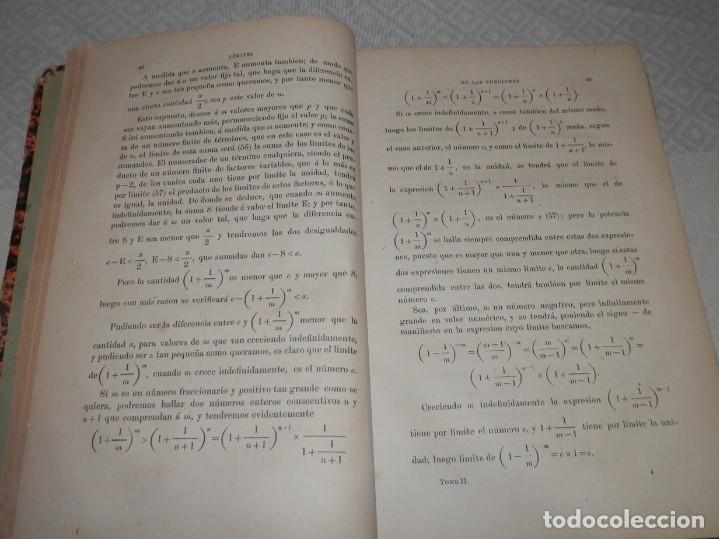 48
LÍMITES
A medida que n aumenta, E aumenta tambien; de modo que
podremos dar á n un valor fijo tal, que haga que la diferencia en-
tre E y e sea tan pequeña como queramos, y por tanto menor que
una cierta cantidad α/2, sea p este valor de n.
Esto supuesto, demos á m valores mayores que p y que cada
vez vayan aumentando más, permaneciendo fijo el valor p; la suma
S irá aumentando tambien, á medida que m aumente; y como
de un número finito de términos, que en este caso es el valor
de n, el límite de esta suma será (56) la suma de los límites de los
sumandos. El numerador de un término cualquiera, siendo el producto
de un número finito de factores variables, que á lo más es
p−2, de los cuales cada uno tiene por límite la unidad, tendrá
por límite (57) el producto de los límites de estos factores, ó lo que
es igual, la unidad. De donde se deduce, que cuando m aumente
indefinidamente, la suma S tiende á el límite E; y por tanto,
podremos dar á m un valor tal, que haga que la diferencia en-
tre S y E sea menor que α/2, y tendremos las dos desigualdades
e−E<α/2, E−S<α/2, que sumadas dan e−S<α.
Pero la cantidad (1+1/m)^m es menor que e y mayor que S,
luego con más razon se verificará e−(1+1/m)^m<α.
Pudiendo ser la diferencia entre e y (1+1/m)^m menor que la
cantidad α, para valores de m que van creciendo indefinidamente,
y pudiendo ser α tan pequeña como queramos, es claro que el límite
de (1+1/m)^m, cuando m crece indefinidamente, es el número e.
Si m es un número fraccionario y positivo tan grande como se
quiera, podremos hallar dos números enteros consecutivos n y
n+1 que comprendan á m, y tendremos evidentemente
(1+1/m)^m>(1+1/(n+1))^n=(1+1/(n+1))^(n+1)×1/(1+1/(n+1))
DE LAS FUNCIONES.
49
(1+1/m)^m<(1+1/n)^(n+1)=(1+1/n)^n×(1+1/n).
Si m crece indefinidamente, n crece tambien del mismo modo,
luego los límites de (1+1/(n+1))^(n+1) y de (1+1/n)^n serán, segun
el caso anterior, el número e, y como el límite de 1+1/(n+1), lo mis-
mo que el de 1+1/n, es la unidad, se tendrá que el límite de
la expresion (1+1/(n+1))^(n+1)×1/(1+1/(n+1)), lo mismo que el de
(1+1/n)^n×(1+1/n), es el número e (57); pero la potencia
(1+1/m)^m se halla siempre comprendida entre estas dos expresio-
nes, puesto que es mayor que una y menor que otra; luego si estas
dos expresiones tienen un mismo límite e, la cantidad (1+1/m)^m
comprendida entre las dos, tendrá tambien por límite el mismo
número e.
Sea, por último, m un número negativo, pero infinitamente
grande en valor numérico, y se tendrá, poniendo el signo − de
manifiesto en la expresion cuyo límite buscamos,
(1−1/m)^−m=((m−1)/m)^−m=(m/(m−1))^m=(1+1/(m−1))^m=
(1+1/(m−1))^(m−1)×(1+1/(m−1)).
Creciendo m indefinidamente la expresion (1+1/(m−1))^(m−1)
tiene por límite el número e, y 1+1/(m−1) tiene por límite la uni-
dad; luego límite de (1−1/m)^−m=e×1=e.
TOMO II.
4
todocoleccion.net